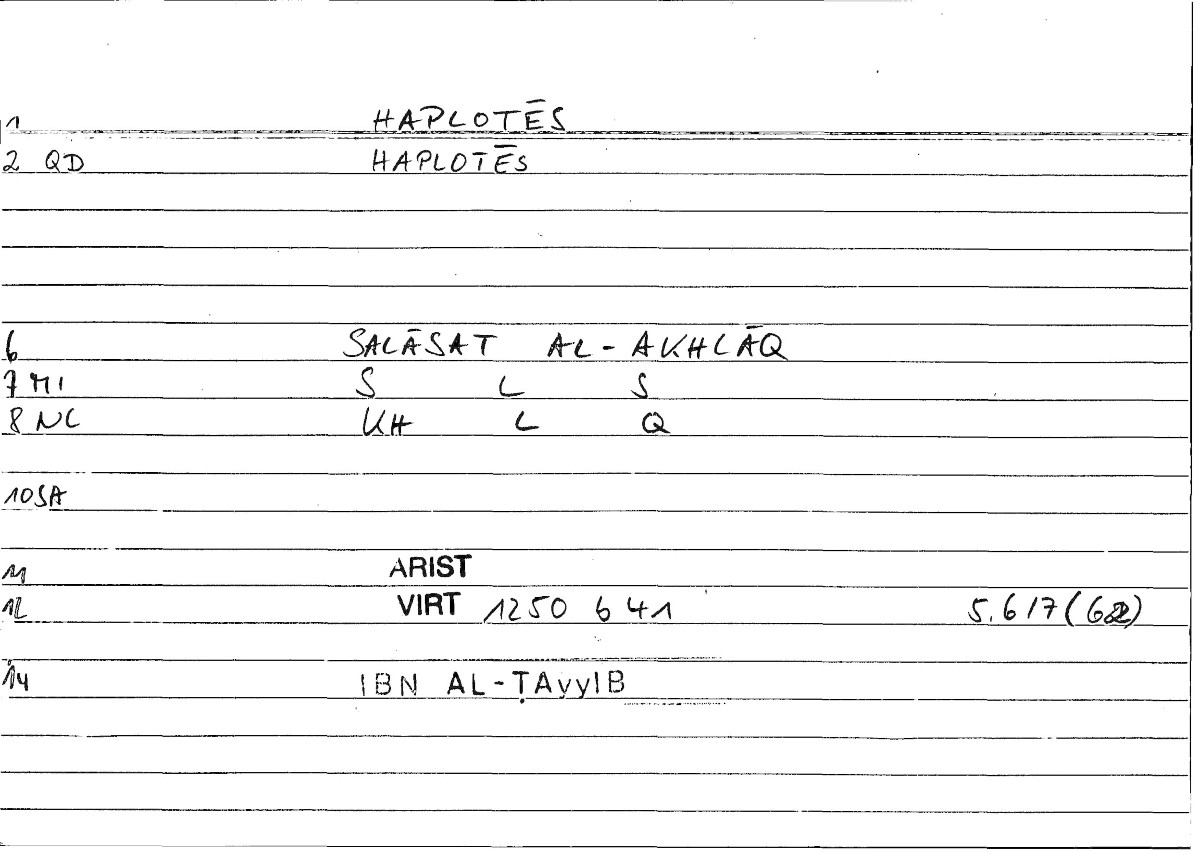 1 HAPLOTĒS
2 QD HAPLOTĒS
6 SALĀSAT AL-AKHLĀQ
7 MI S L S
8 NC KH L Q
10 SA
11 ARIST
12 VIRT 1250 b 41 5.6/7 (62)
14 IBN AL-ṬAyyIB